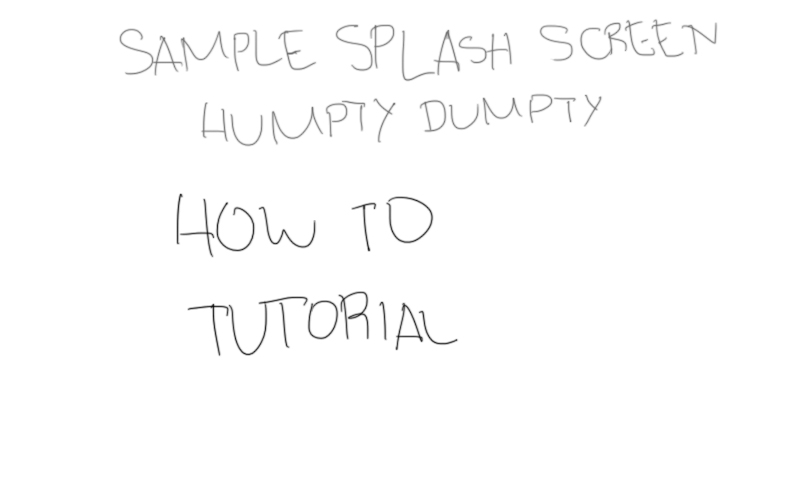 SAMPLE SPLASH SCREEN
HUMPTY DUMPTY
HOW TO
TUTORIAL